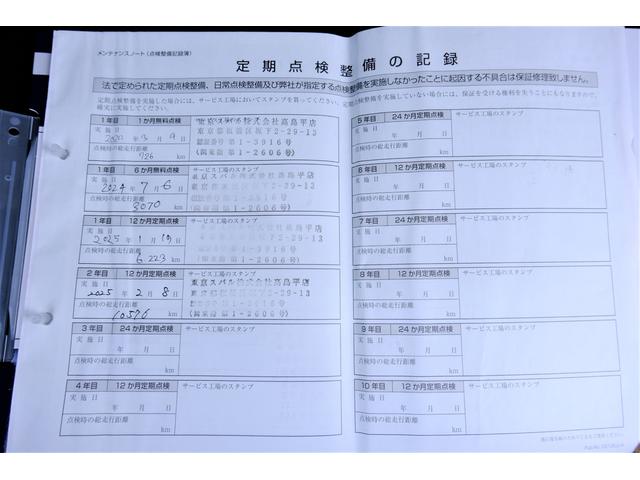 メンテナンスノート（点検整備記録簿）
定期点検整備の記録
法で定められた定期点検整備、日常点検整備及び弊社が指定する点検整備を実施しなかったことに起因する不具合は保証修理致しません。
定期点検整備を実施した場合には、サービス工場においてスタンプを貰ってください。定期点検整備を実施していない場合は、保証を受ける権利を失うことにもなりますので、
確実に実施してください。
1年目 1か月無料点検
実施日
年 3月 9日
点検時の総走行距離
726 km
東京スバル株式会社高島平店
東京都板橋区坂下2-29-13
第1-3916号
(関東振1-2606号)
1年目 6か月無料点検 サービス工場のスタンプ
実施日
2024年 7月 6日
点検時の総走行距離
3070 km
東京スバル株式会社高島平店
2-29-13
第1-3916号
(関東振1-2606号)
1年目 12か月定期点検 サービス工場のスタンプ
実施日
2025年 1月 19日
点検時の総走行距離
6223 km
2-29-13
1-3916号
(関東振1-2606号)
2年目 12か月定期点検 サービス工場のスタンプ
実施日
2025年 2月 8日
点検時の総走行距離
10576 km
東京スバル株式会社高島平店
2-29-13
(関東振1-2606号)
3年目 24か月定期点検 サービス工場のスタンプ
実施日
年 月 日
点検時の総走行距離
km
4年目 12か月定期点検 サービス工場のスタンプ
実施日
年 月 日
点検時の総走行距離
km
5年目 24か月定期点検 サービス工場のスタンプ
実施日
年 月 日
点検時の総走行距離
km
6年目 12か月定期点検 サービス工場のスタンプ
実施日
年 月 日
点検時の総走行距離
km
7年目 24か月定期点検 サービス工場のスタンプ
実施日
年 月 日
点検時の総走行距離
km
8年目 12か月定期点検 サービス工場のスタンプ
実施日
年 月 日
点検時の総走行距離
km
9年目 24か月定期点検 サービス工場のスタンプ
実施日
年 月 日
点検時の総走行距離
km
10年目 12か月定期点検 サービス工場のスタンプ
実施日
年 月 日
点検時の総走行距離
km